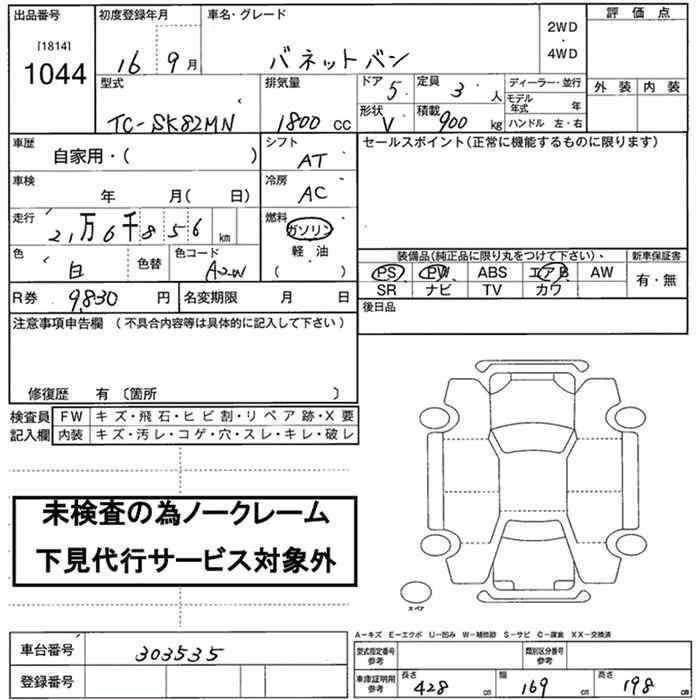 出品番号
[1814]
1044
初度登録年月
16 9 月
車名・グレード
バネットバン
2WD
・
4WD
評 価 点
外 装 内 装
型式
TC-SK82MN
排気量
1800 CC
ドア 5
形状 V
定員 3 人
積載 900 kg
ディーラー・並行
モデル年式 年
ハンドル 左・右
車歴
自家用・( )
シフト
AT
セールスポイント(正常に機能するものに限ります)
車検
年 月( 日)
冷房
AC
走行
2,万6千856 km
燃料
ガソリン
軽・油
( )
色
白
色替
色コード
A2W
装備品(純正品に限り丸をつけて下さい)、
PS PW ABS エアB AW
SR ナビ TV カワ
新車保証書
有・無
R券 9,830 円
名変期限 月 日
後日品
注意事項申告欄 (不具合内容等は具体的に記入して下さい)
修復歴 有 〔箇所 〕
検査員
記入欄
FW キズ・飛石・ヒビ割・リペア跡・X要
内装 キズ・汚レ・コゲ・穴・スレ・キレ・破レ
未検査の為ノークレーム
下見代行サービス対象外
スペア
A-キズ E-エクボ U-凹み W-補修跡 S-サビ C-腐食 XX-交換済
車台番号 303535
登録番号
型式指定番号
参考
類別区分番号
参考
車庫証明用
参考
長さ 428 cm
幅 169 cm
高さ 198 cm